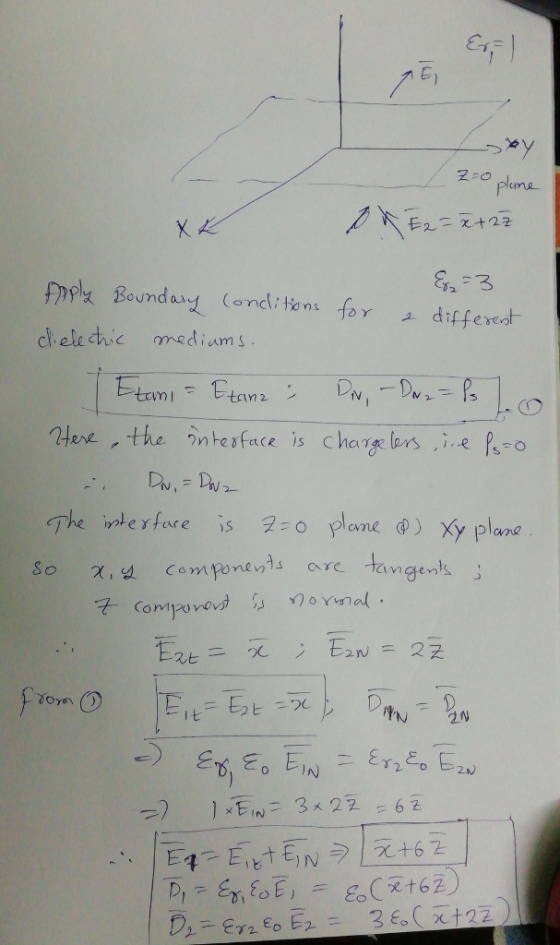 εr₁=1
E̅₁
XY
Z=0 plane
X
E̅₂ = x̅+2z̅
εr₂=3
Apply Boundary Conditions for 2 different
dielectric mediums.
Etan1 = Etan2 ; DN₁ - DN₂ = ρs . ①
Here, the interface is chargeless, i.e ρs=0
∴ DN₁ = DN₂
The interface is Z=0 plane (or) XY plane.
so x,y components are tangents ;
Z component is normal.
∴ E̅2t = x̅ ; E̅2N = 2z̅
from ① E̅1t = E̅2t = x̅ ; D̅1N = D̅2N
⇒ εr₁ ε0 E̅1N = εr2 ε0 E̅2N
⇒ 1×E̅1N = 3×2z̅ = 6z̅
∴ E̅1 = E̅1t + E̅1N ⇒ x̅+6z̅
D̅₁ = εr₁ ε0 E̅₁ = ε0(x̅+6z̅)
D̅₂ = εr2 ε0 E̅₂ = 3ε0(x̅+2z̅)